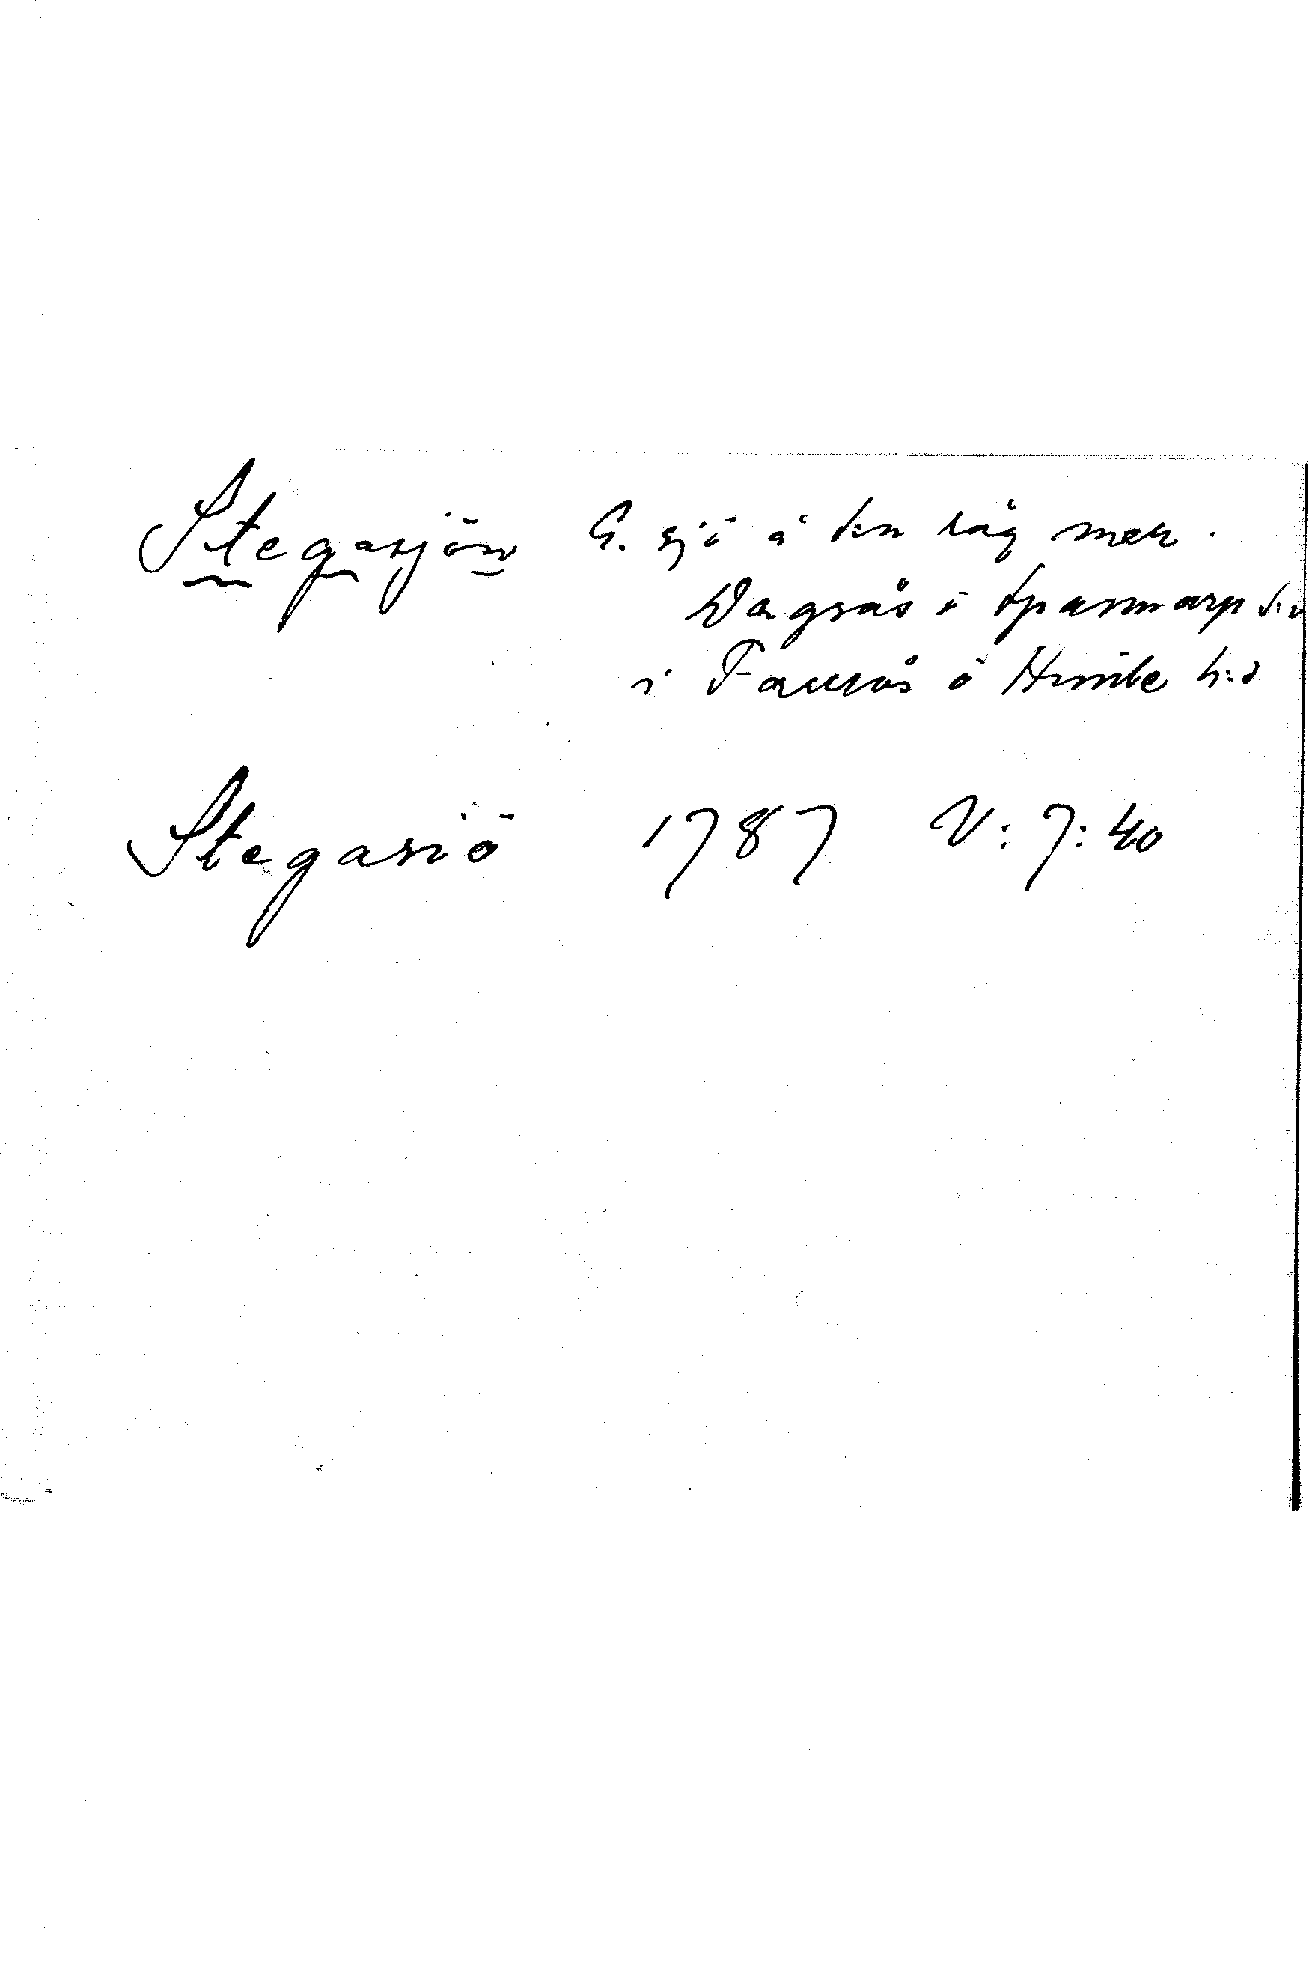 Stegasjön G. sjö å den låg mell.
Dagsås i Spannarp s:n
i Faurås o Himle h:d
Stegasiö 1787 V:7:40